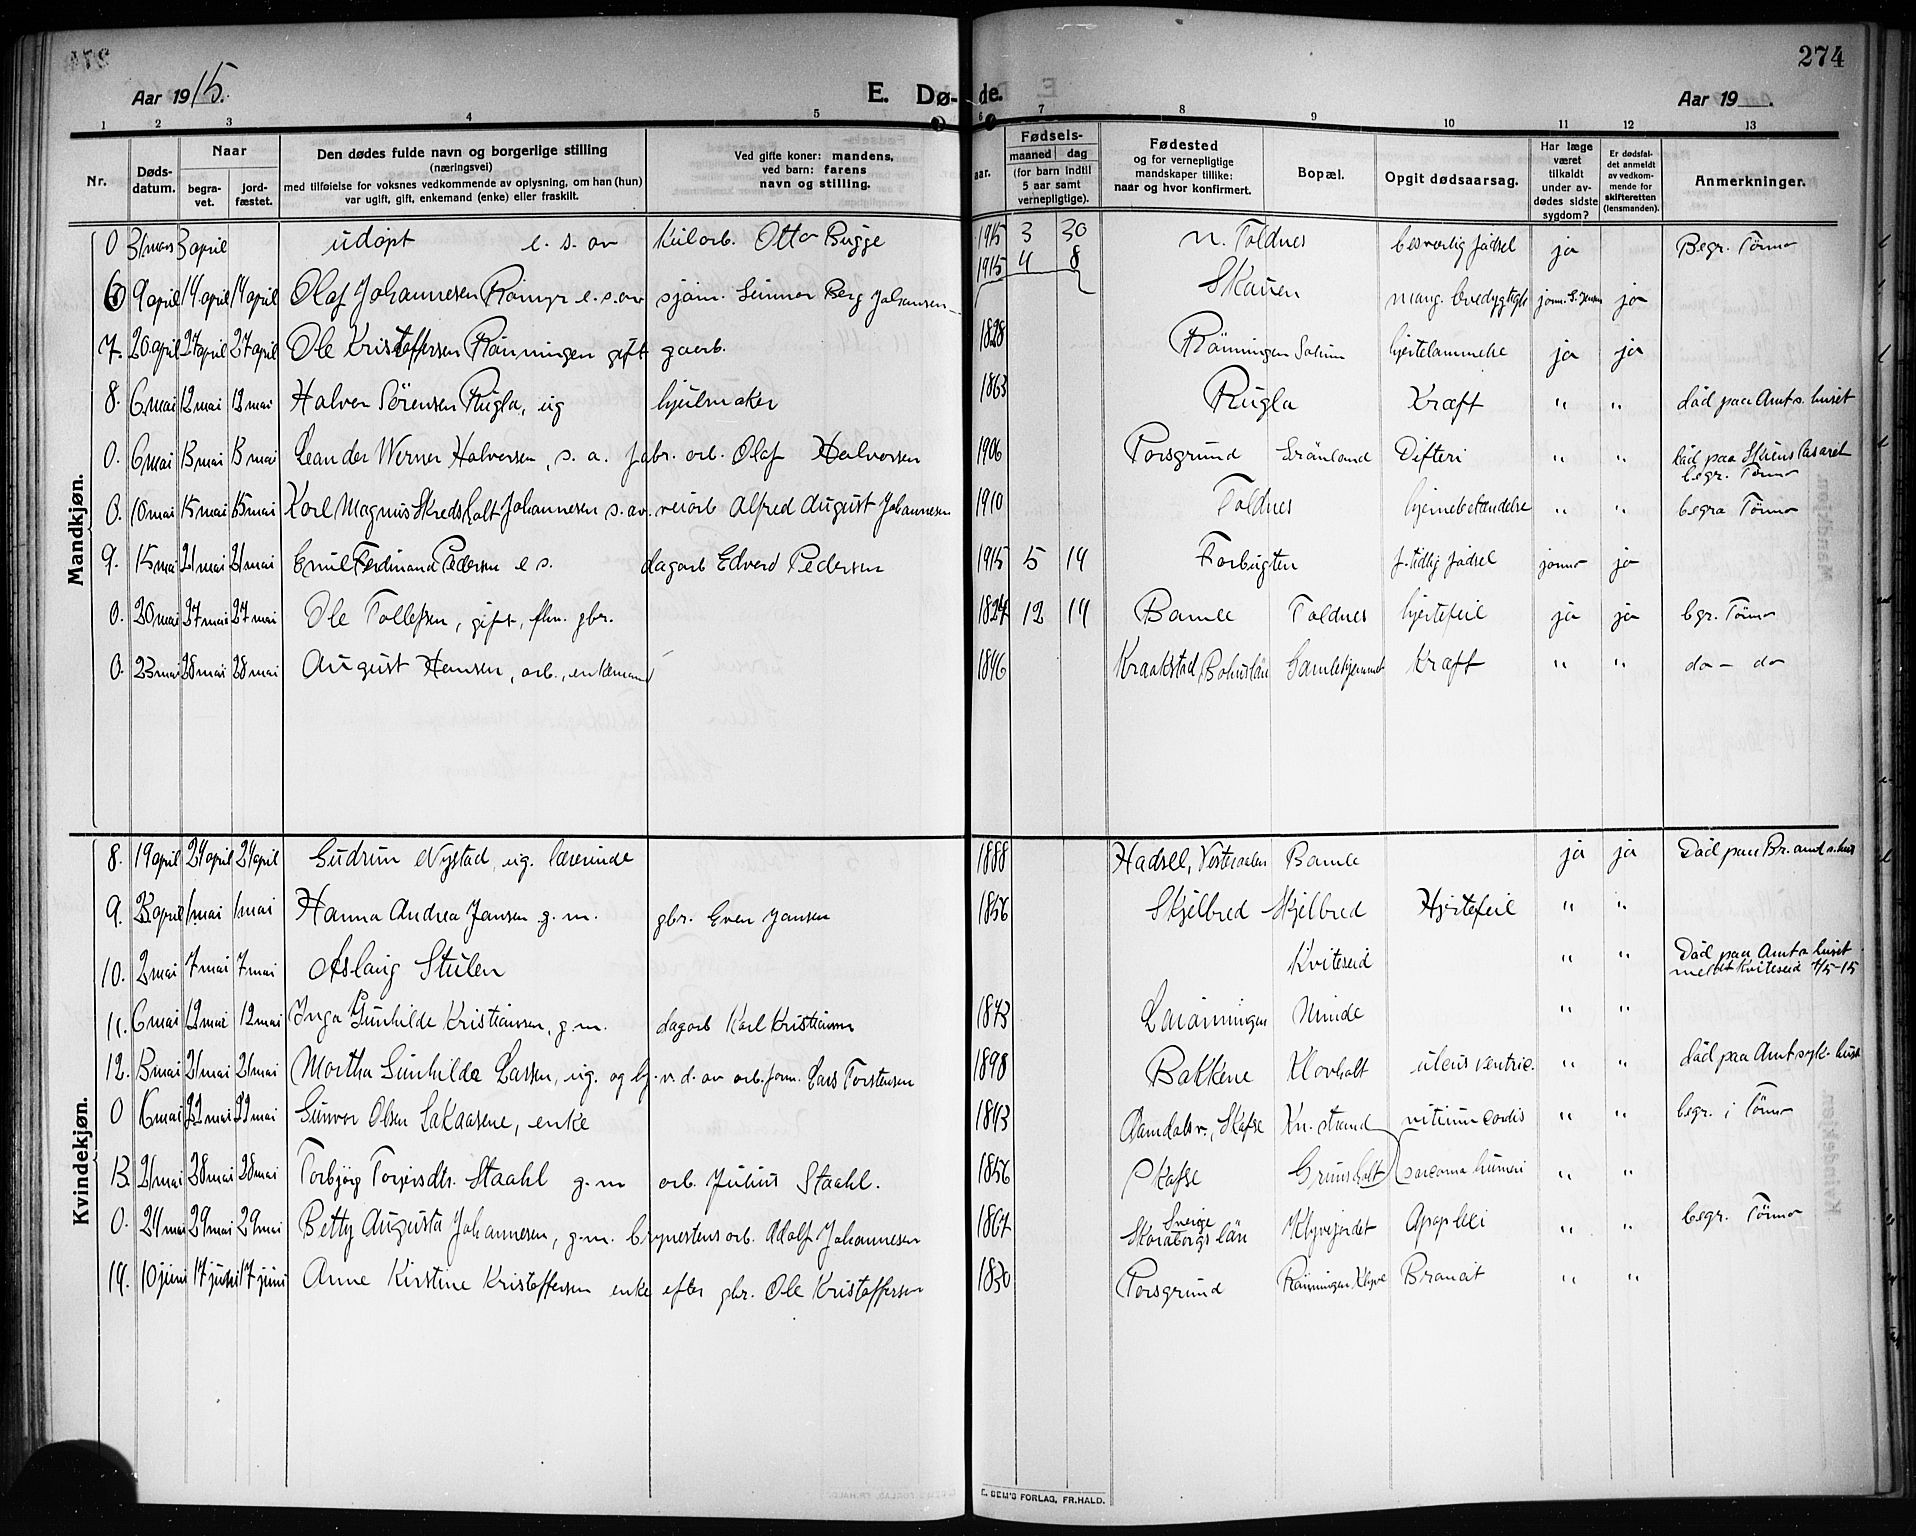 274
Aar 1915.
E. Dø- de.
Aar 19 .
1 2 3 4 5 6 7 8 9 10 11 12 13
Nr.
Døds-
datum.
Naar
begra-
vet.
jord-
fæstet.
Den dødes fulde navn og borgerlige stilling
(næringsvei)
med tilføielse for voksnes vedkommende av oplysning, om han (hun)
var ugift, gift, enkemand (enke) eller fraskilt.
Ved gifte koner: mandens,
ved barn: farens
navn og stilling.
aar.
Fødsels-
maaned dag
(for barn indtil
5 aar samt
vernepligtige).
Fødested
og for vernepligtige
mandskaper tillike:
naar og hvor konfirmert.
Bopæl.
Opgit dødsaarsag.
Har læge
været
tilkaldt
under av-
dødes sidste
sygdom?
Er dødsfal-
det anmeldt
av vedkom-
mende for
skifteretten
(lensmanden).
Anmerkninger.
Mandkjøn.
0 31 mars 3 april udøpt e. s. av kulorb. Otto Bugge 1915 3 30 N. Toldnes besværlig fødsel ja Begr. Tørmo
6 9 april 14 april 14 april Olaf Johannesen Rømyr e. s. av sjøm. Gunnar Berg Johansen 1915 4 8 Skauen mang. levedygtigh. ja
7. 20 april 27 april 27 april Ole Kristoffersen Rønningen gift gaarb. 1828 Rønningen Solum hjertelammelse ja ja
8. 6 mai 12 mai 12 mai Halvor Sørensen Rugla, ug hjulmaker 1863 Rugla Kræft " " død paa Amts. huset
0. 6 mai 13 mai 13 mai Leander Werner Halvorsen, s. a. fabr. orb. Olaf Halvorsen 1906 Porsgrund Grønland Difteri " " død paa Skiens lasaret
begr. Tørmo
0. 10 mai 15 mai 15 mai Karl Magnus Skredsholt Johannesen s. av veiorb Alfred August Johannesen 1910 Toldnes hjernebetændelse " " begra Tørmo
9. 15 mai 21 mai 21 mai Emil Ferdinand Pedersen e s. dagorb Edvard Pedersen 1915 5 14 Forbugten f. tidlig fødsel ja
0. 20 mai 27 mai 27 mai Ole Tollefsen, gift, fhn. gbr. 1824 12 14 Bamle Toldnes hjertefeil ja ja bgr. Tørmo
0. 23 mai 28 mai 28 mai August Hansen, orb., enkemand 1846 Kraakstad Bohuslän Gamlehjemmet Kræft " " do - do
Kvindekjøn.
8. 19 april 24 april 24 april Gudrun Nystad, ug. lærerinde 1888 Hadsel, Vesteraalen Bamle ja ja Død paa Br. amts. hus
9. 23 april 1 mai 1 mai Hanna Andrea Jansen g. m. gbr. Even Jansen 1856 Skjelbred Skjelbred Hjertefeil " "
10. 2 mai 7 mai 7 mai Aslaug Stulen Kviteseid " " Død paa Amts. huset
meldt Kviteseid 7/5-15
11. 6 mai 12 mai 12 mai Inga Gunhilde Kristiansen, g. m. dagorb Karl Kristiansen 1873 Minde " "
12. 13 mai 21 mai 21 mai Martha Gunhilde Larsen, ug. og hj. v. d. av orb. form. Lars Torstensen 1898 Bakkene Klovholt ulcus ventric. " " død paa Amtsyk. huset
0 16 mai 22 mai 22 mai Gunvor Olsen Lakaasene, enke 1843 Aamdalsv., Skafse Kn. strand vitium cordis " " begr. i Tørmo
13. 21 mai 28 mai 28 mai Torbjørg Torjersdtr. Staahl g. m orb. Julius Staahl. 1856 Skafse Grunsholt sarcoma humeri " "
0. 24 mai 29 mai 29 mai Betty Augusta Johannesen, g. m. brynestensorb. Adolf Johannesen 1864 Sverige
Skaraborgs län Klyvejordet Apoplexi " " begr. Tørmo
14. 10 juni 17 juni 17 juni Anne Kirstine Kristoffersen enke efter gbr. Ole Kristoffersen 1830 Porsgrund Rønningen Klyve Brandt " "
E. SEM'S FORLAG, FR.HALD.